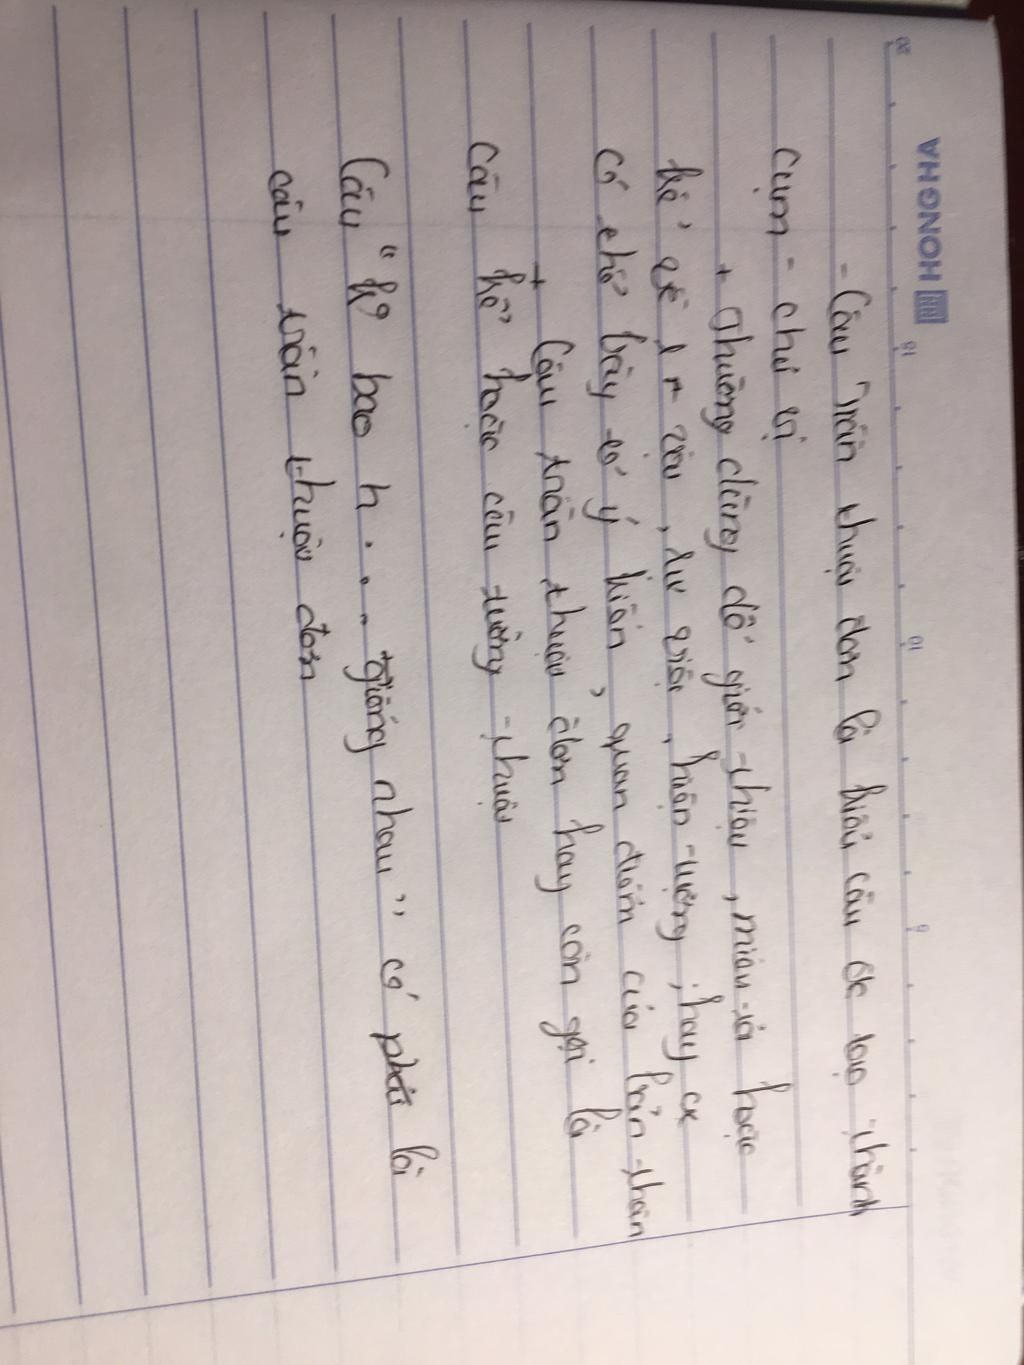 HONG HA
20 15 10 5
- Câu Trần thuật đơn là kiểu câu đc tạo thành
cụm - chủ vị
+ Thường dùng để giới thiệu, miêu tả hoặc
kể về 1 sự vật, sự việc, hiện tượng; hay
có chỗ bày tỏ ý kiến, quan điểm của bản thân
+ Câu trần thuật đơn hay còn gọi là
câu kể hoặc câu tường thuật
Câu "k° bao h ... giống nhau" có phải là
câu trần thuật đơn